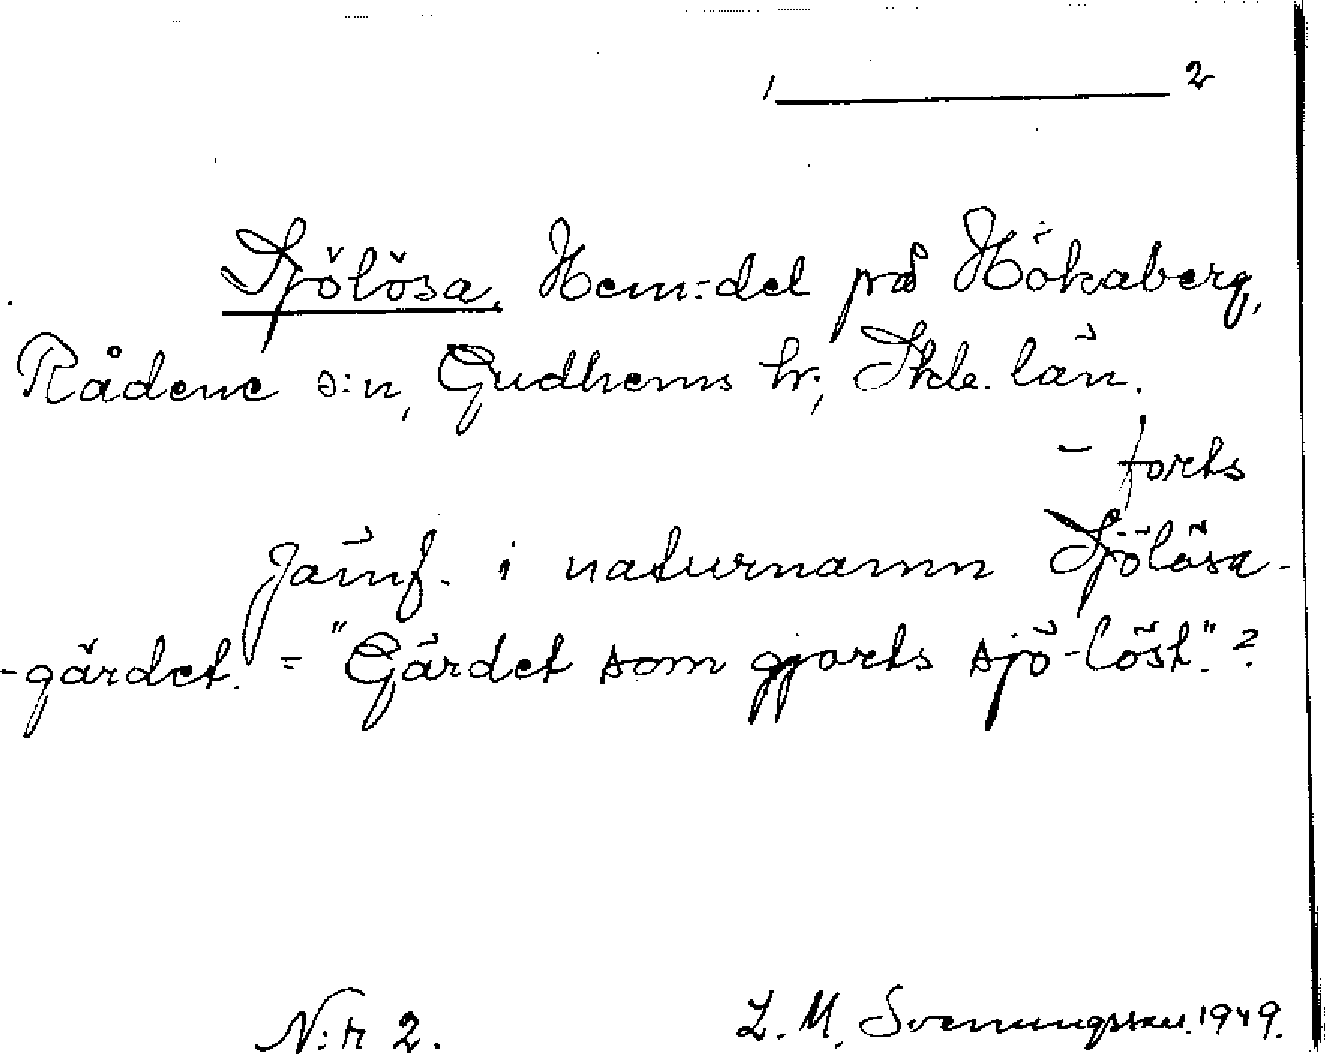 1 2
Sjölösa, Hem:del på Hökaberg,
Rådene s:n, Gudhems hr; Skb. län.
– forts
Jämf. i naturnamn Sjölösa-
-gärdet. = "Gärdet som gjorts sjö-löst."?
N:r 2. L. M. Svenungsson. 1949.